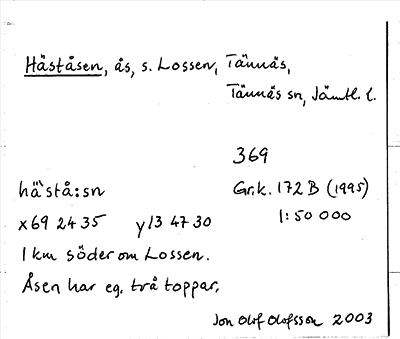 Häståsen, ås, s. Lossen, Tännäs,
Tännäs sn, Jämtl. l.
369
hä`stå:sn
Gr.k. 172 B (1995)
x 69 24 35 y 13 47 30
1:50 000
1 km söder om Lossen.
Åsen har eg. två toppar.
Jon Olof Olofsson 2003